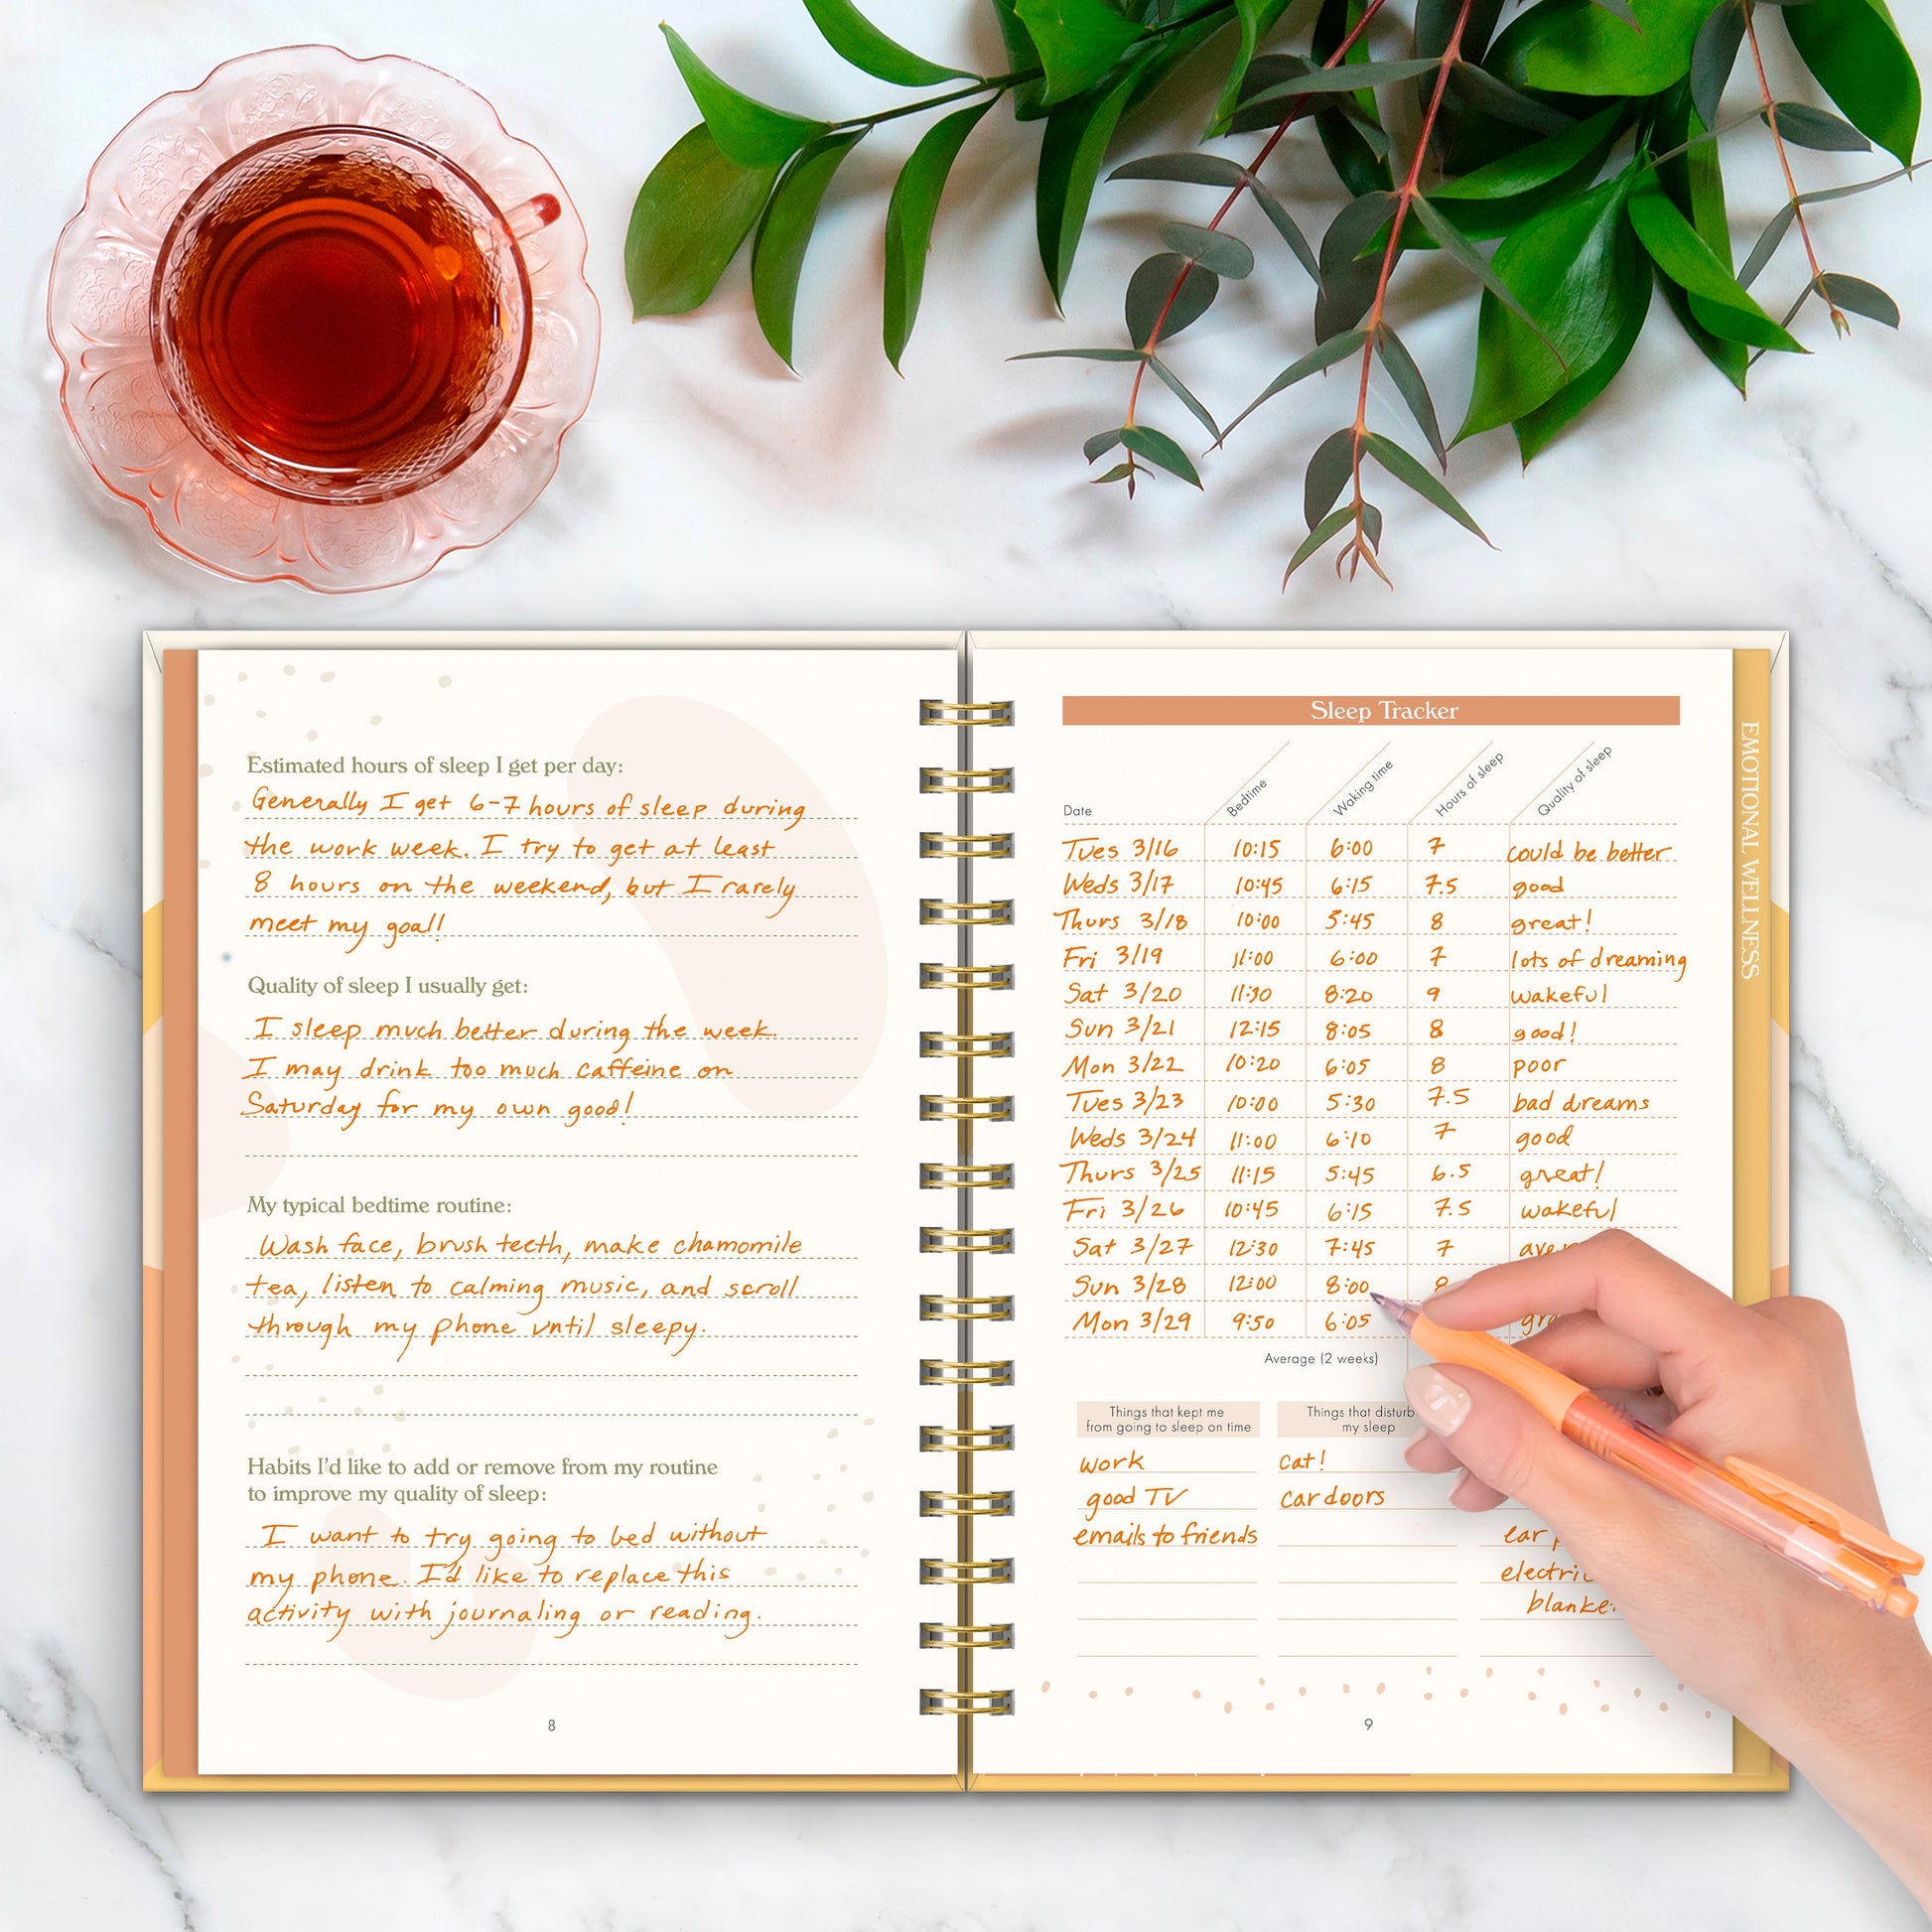 Estimated hours of sleep I get per day:
Generally I get 6-7 hours of sleep during
the work week. I try to get at least
8 hours on the weekend, but I rarely
meet my goal!
Quality of sleep I usually get:
I sleep much better during the week.
I may drink too much caffeine on
Saturday for my own good!
My typical bedtime routine:
Wash face, brush teeth, make chamomile
tea, listen to calming music, and scroll
through my phone until sleepy.
Habits I'd like to add or remove from my routine
to improve my quality of sleep:
I want to try going to bed without
my phone. I'd like to replace this
activity with journaling or reading.
8
Sleep Tracker
Date Bedtime Waking time Hours of sleep Quality of sleep
Tues 3/16 10:15 6:00 7 could be better
Weds 3/17 10:45 6:15 7.5 good
Thurs 3/18 10:00 5:45 8 great!
Fri 3/19 11:00 6:00 7 lots of dreaming
Sat 3/20 11:30 8:20 9 wakeful
Sun 3/21 12:15 8:05 8 good!
Mon 3/22 10:20 6:05 8 poor
Tues 3/23 10:00 5:30 7.5 bad dreams
Weds 3/24 11:00 6:10 7 good
Thurs 3/25 11:15 5:45 6.5 great!
Fri 3/26 10:45 6:15 7.5 wakeful
Sat 3/27 12:30 7:45 7
Sun 3/28 12:00 8:00 8
Mon 3/29 9:50 6:05
Average (2 weeks)
Things that kept me
from going to sleep on time
work
good TV
emails to friends
Things that disturb
my sleep
cat!
car doors
ear
9
EMOTIONAL WELLNESS